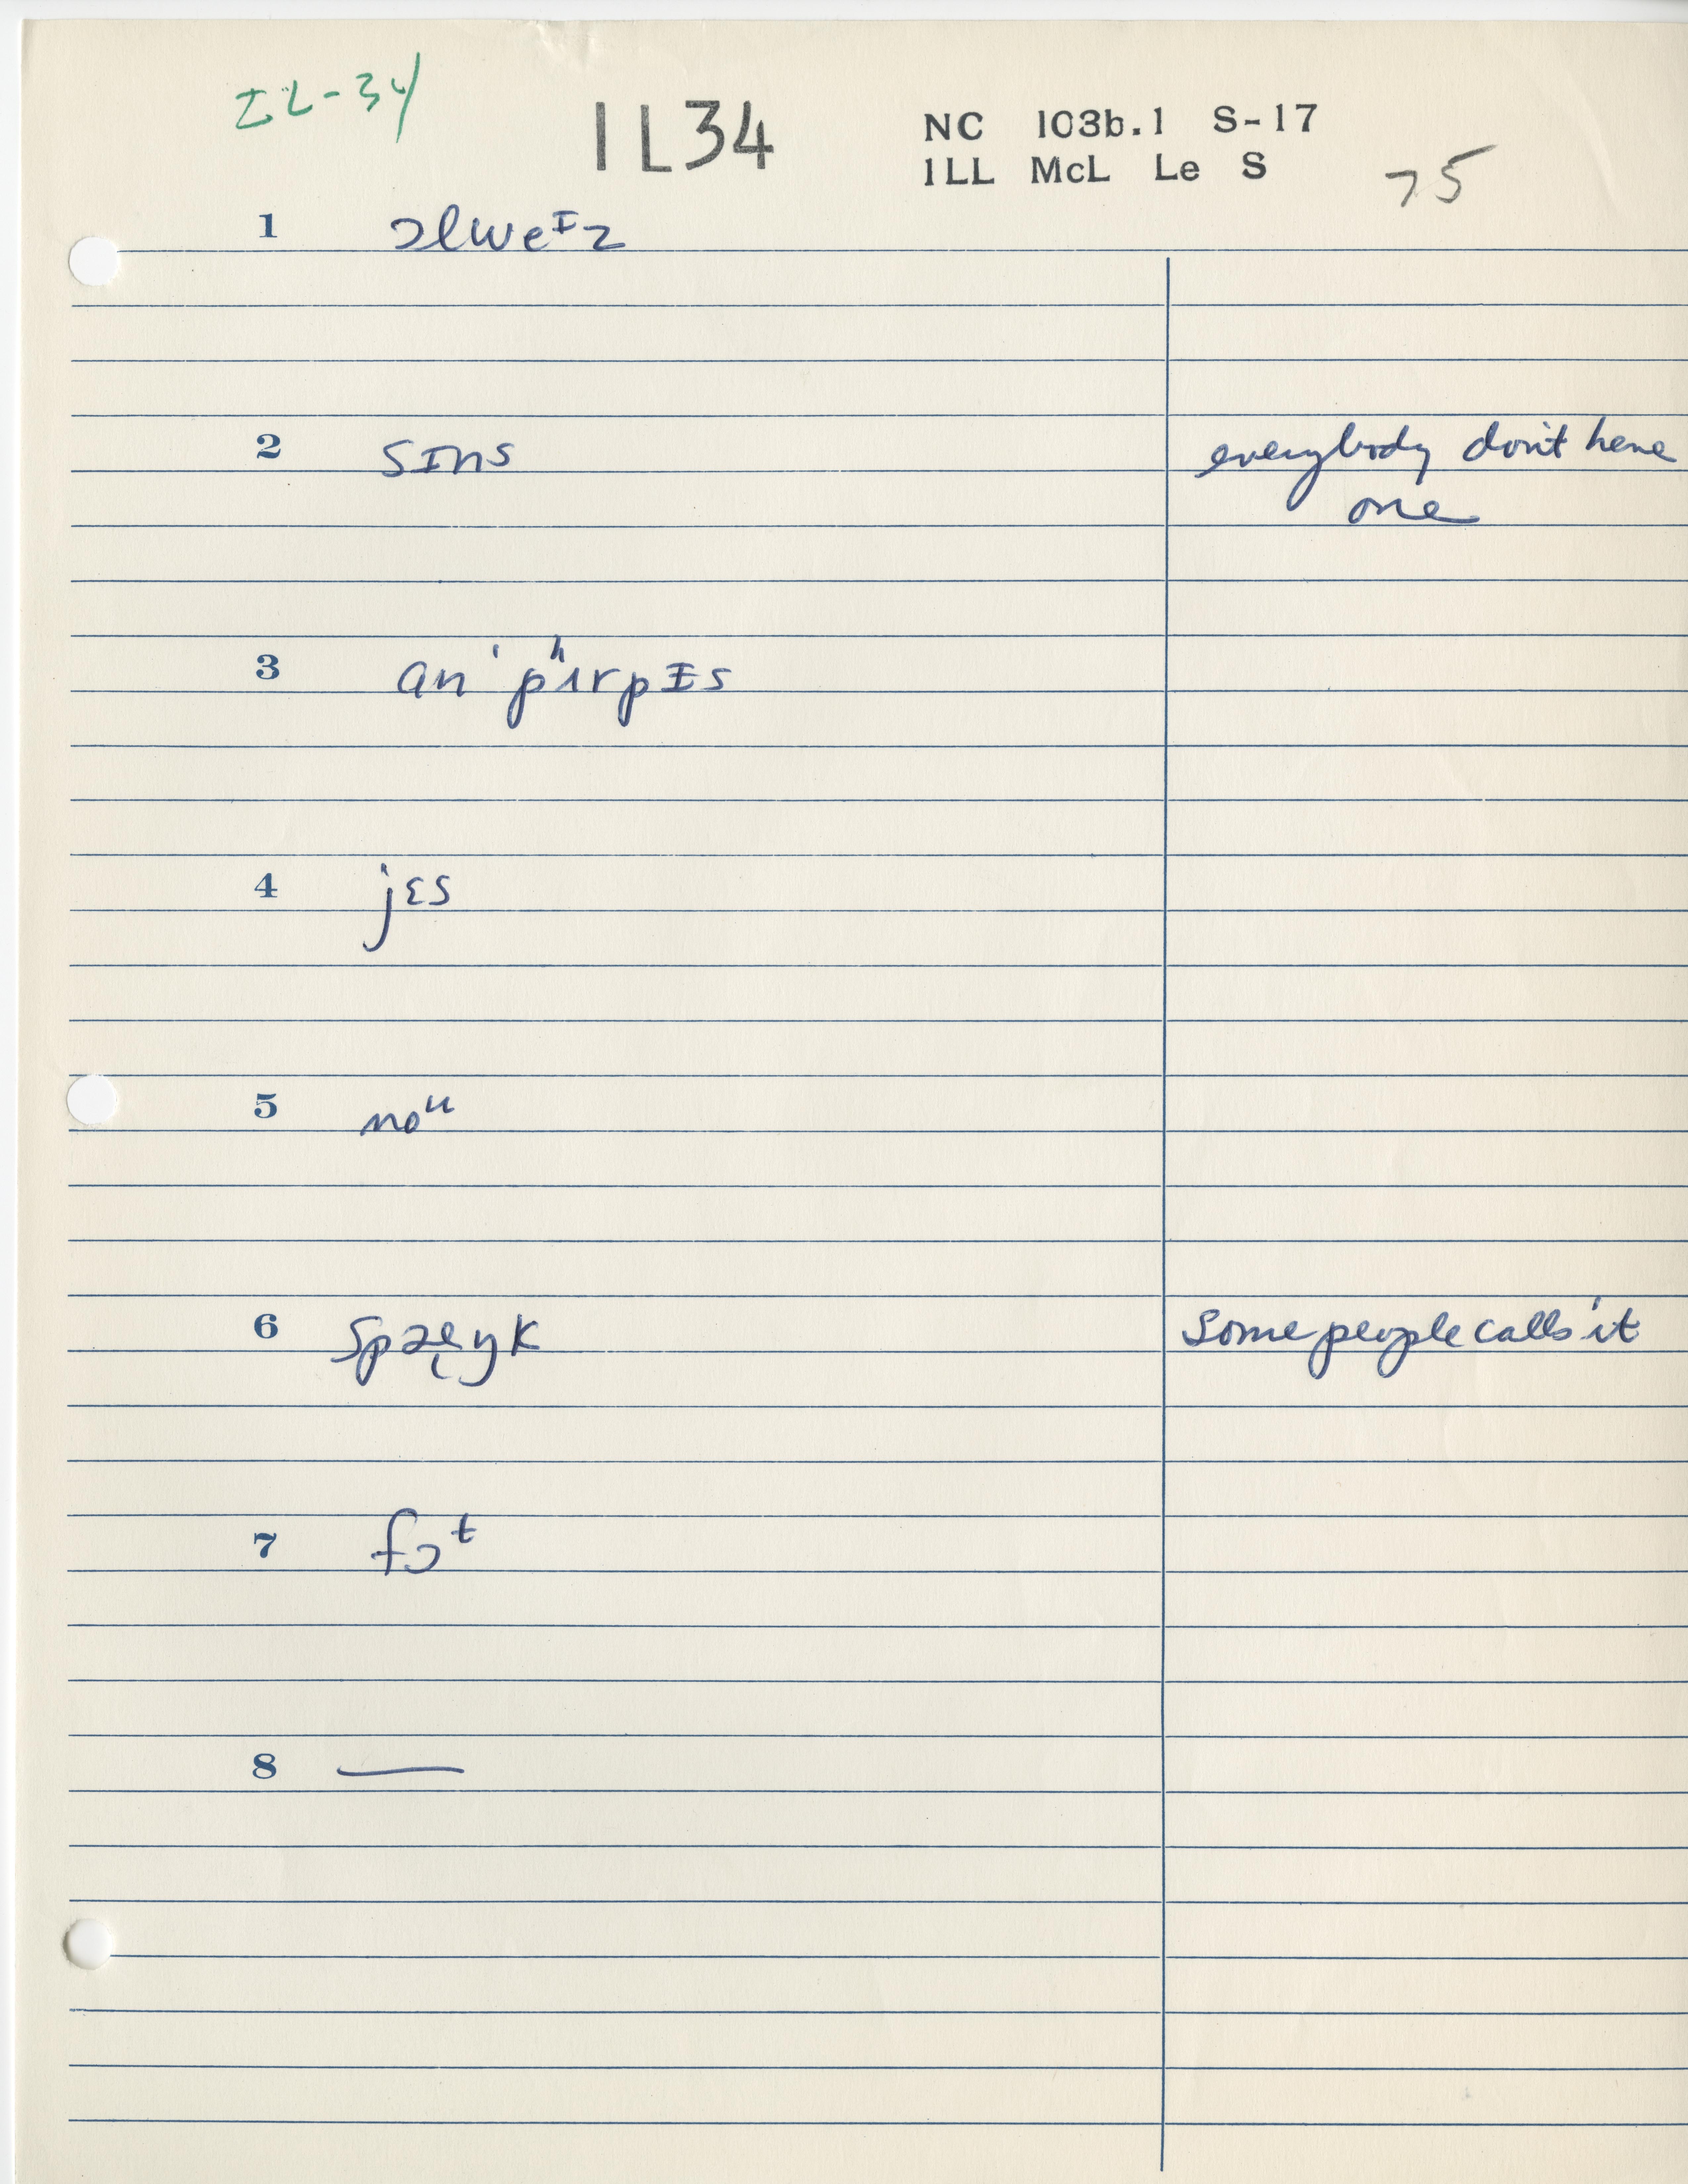 IL-34
IL34
NC 103b.1 S-17
ILL McL Le S
75
1 ɔlweᴵz
2 sɪns
everybody don't have
one
3 an ˈpʰɜrpɪs
4 jɛs
5 noᵘ
6
Some people calls it
7 fɔᵗ
8 —